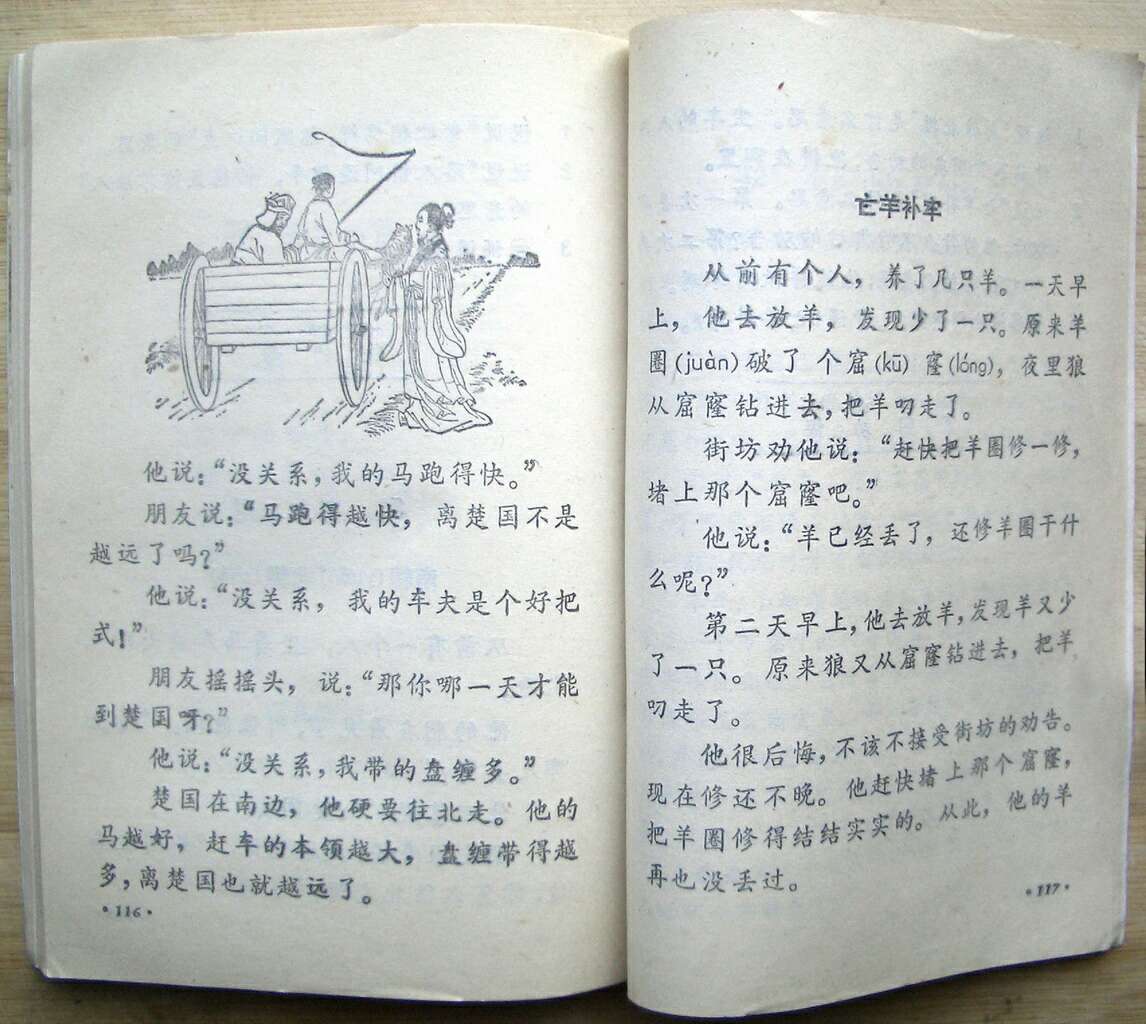 他说：“没关系，我的马跑得快。”
朋友说：“马跑得越快，离楚国不是
越远了吗？”
他说：“没关系，我的车夫是个好把
式！”
朋友摇摇头，说：“那你哪一天才能
到楚国呀？”
他说：“没关系，我带的盘缠多。”
楚国在南边，他硬要往北走。他的
马越好，赶车的本领越大，盘缠带得越
多，离楚国也就越远了。
·116·
亡羊补牢
从前有个人，养了几只羊。一天早
上，他去放羊，发现少了一只。原来羊
圈(juàn)破了个窟(kū)窿(lóng)，夜里狼
从窟窿钻进去，把羊叼走了。
街坊劝他说：“赶快把羊圈修一修，
堵上那个窟窿吧。”
他说：“羊已经丢了，还修羊圈干什
么呢？”
第二天早上，他去放羊，发现羊又少
了一只。原来狼又从窟窿钻进去，把羊
叼走了。
他很后悔，不该不接受街坊的劝告。
现在修还不晚。他赶快堵上那个窟窿，
把羊圈修得结结实实的。从此，他的羊
再也没丢过。
·117·